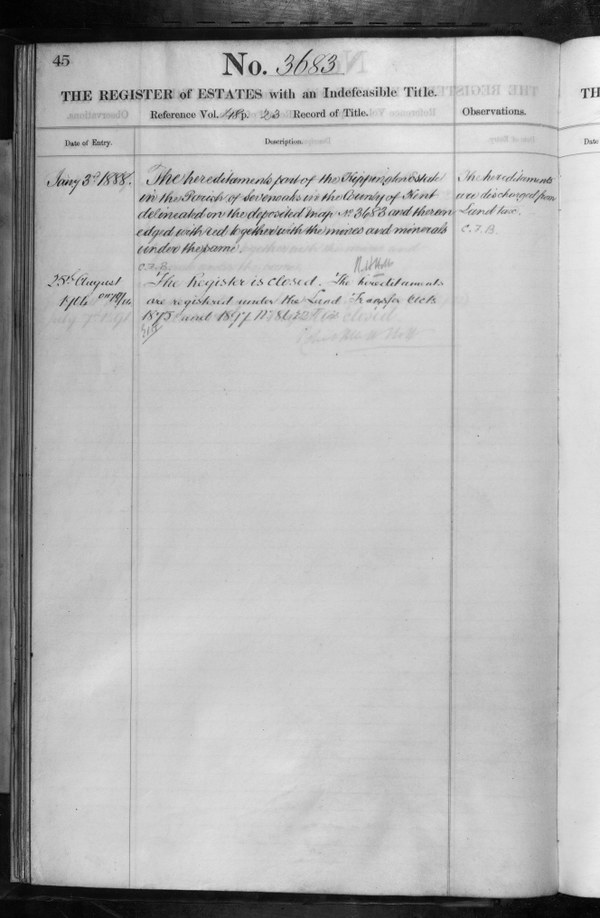 45
No. 3683
THE REGISTER of ESTATES with an Indefeasible Title.
Reference Vol. 48 p. 23 Record of Title.
Observations.
Date of Entry.
Description.
Jany 3rd 1888.
The hereditaments part of the Kippington Estate
in the Parish of Sevenoaks in the County of Kent
delineated on the deposited map No 3683 and thereon
edged with red together with the mines and minerals
under the same.
C.T.B.
The hereditaments
are discharged from
Land tax.
C.T.B.
25th August
The Register is closed. The hereditaments
are registered under the Land Transfer Acts
1875 and 1897 No
TH
Date